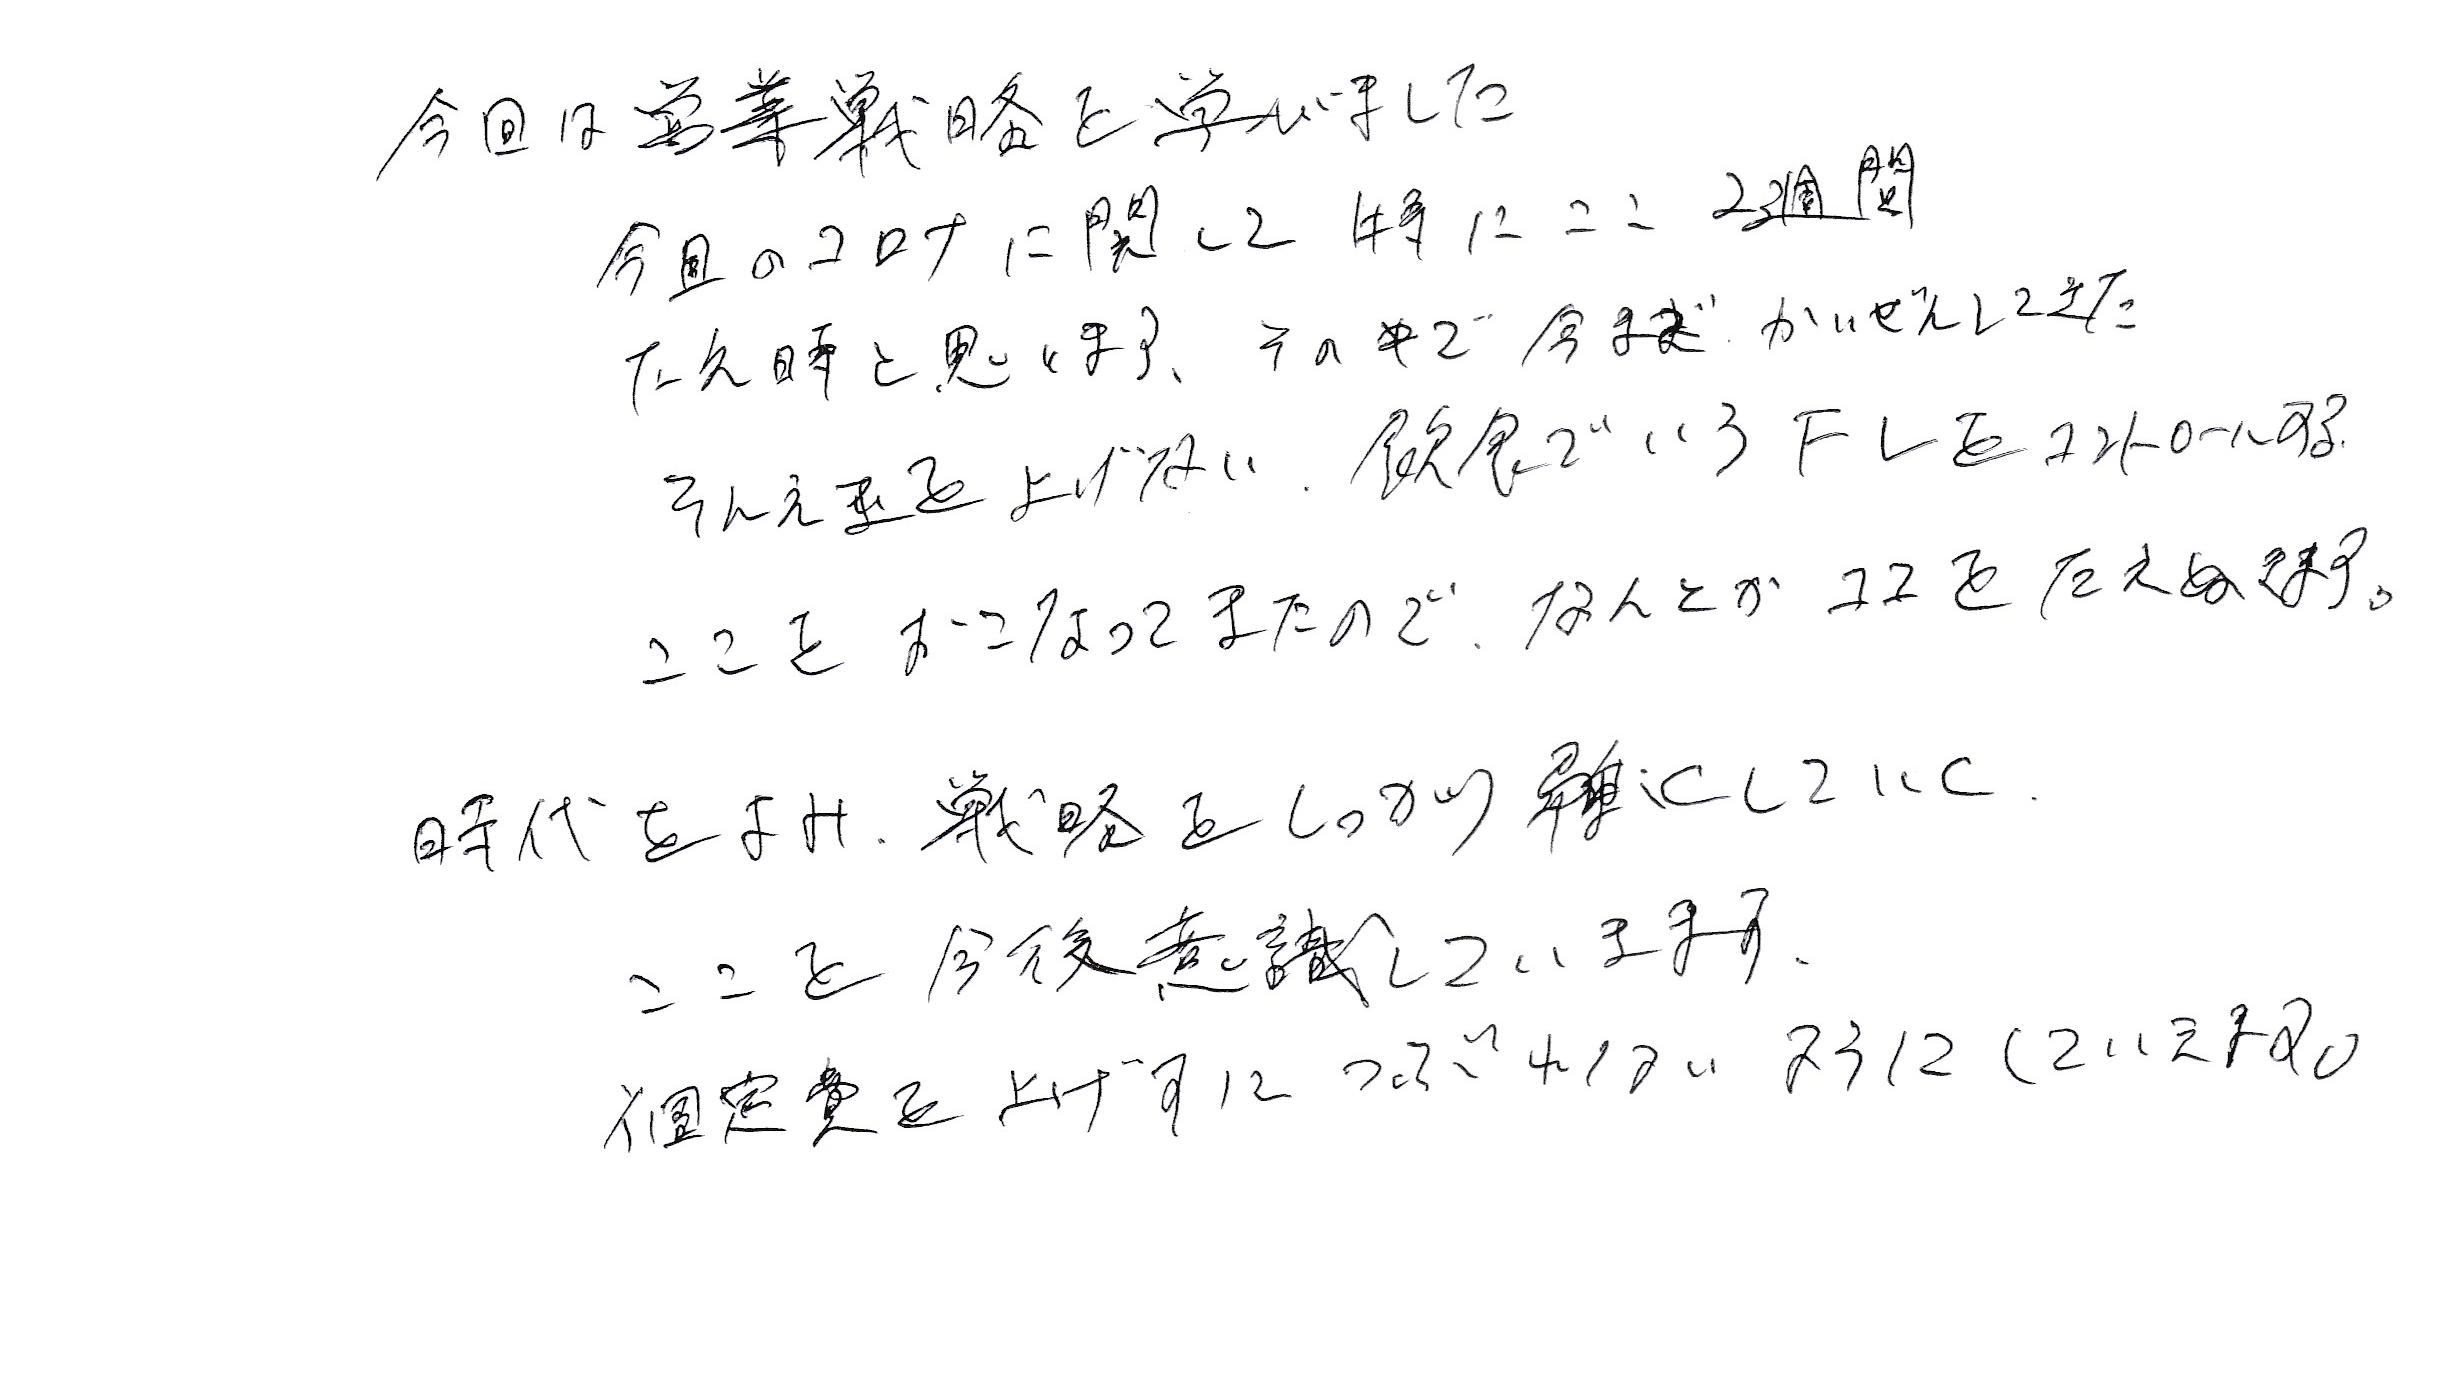 今回は営業戦略を学びました
今回のコロナに関して特にここ2 3週間
たえ時と思います、その中で今まで、かいぜんしてきた
そんえきを上げない、飲食でいうFLをコントロールする
ここをおこなってきたので、なんとかココをたえぬきます。
時代をよみ、戦略をしっかりしていく、
ここを今後意識していきます、
個定費を上げずにつぶれないようにしていきます。